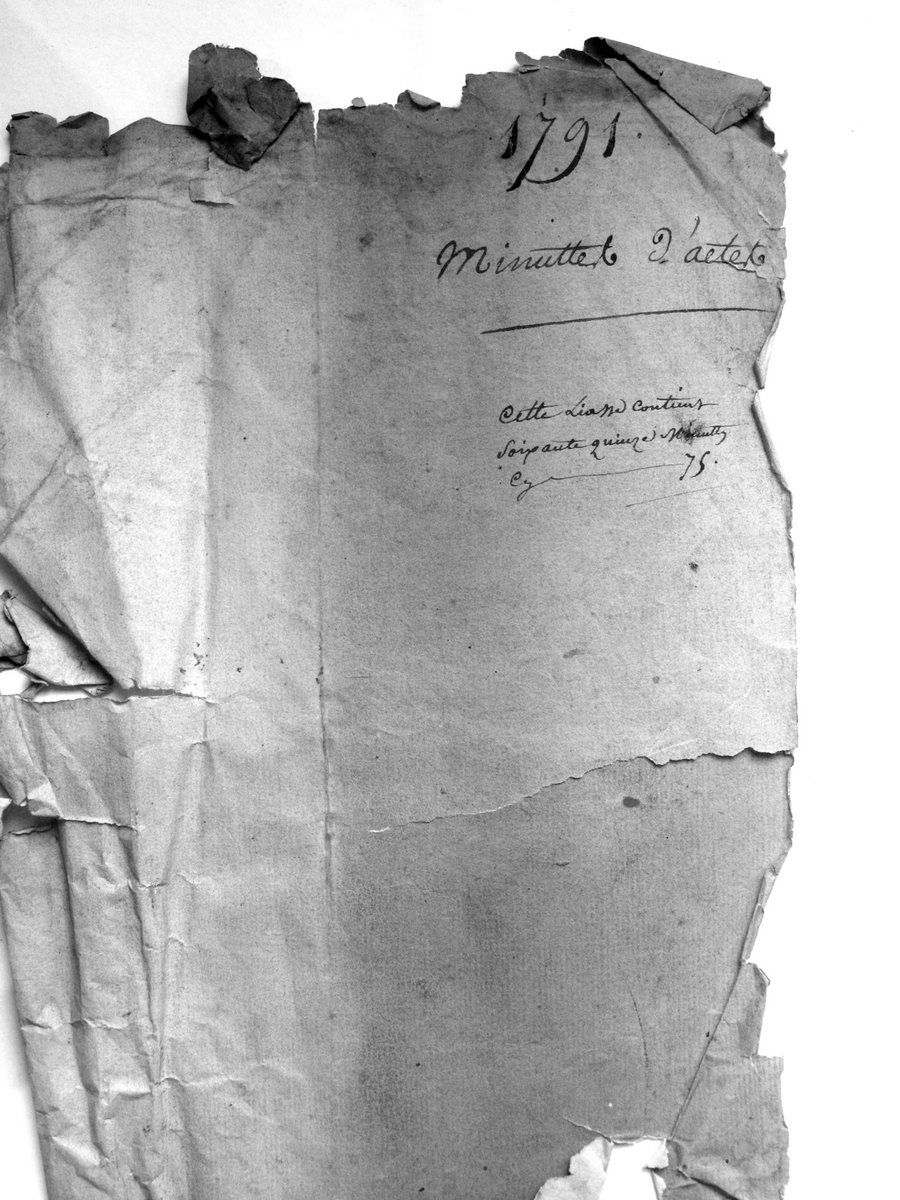 1791.
Minuttes d'actes
Cette Liasse contient
Soixante quinze Minuttes
Cy 75.